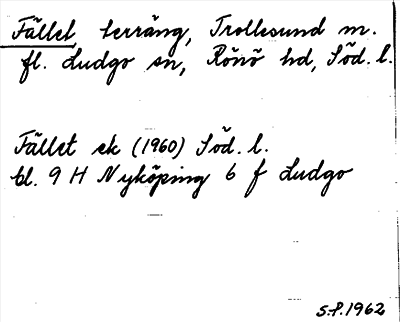 Fället terräng, Trollesund m.
fl. Ludgo sn, Rönö hd, Söd. l.
Fället ek (1960) Söd. l.
bl. 9 H Nyköping 6 f Ludgo
S.P. 1962